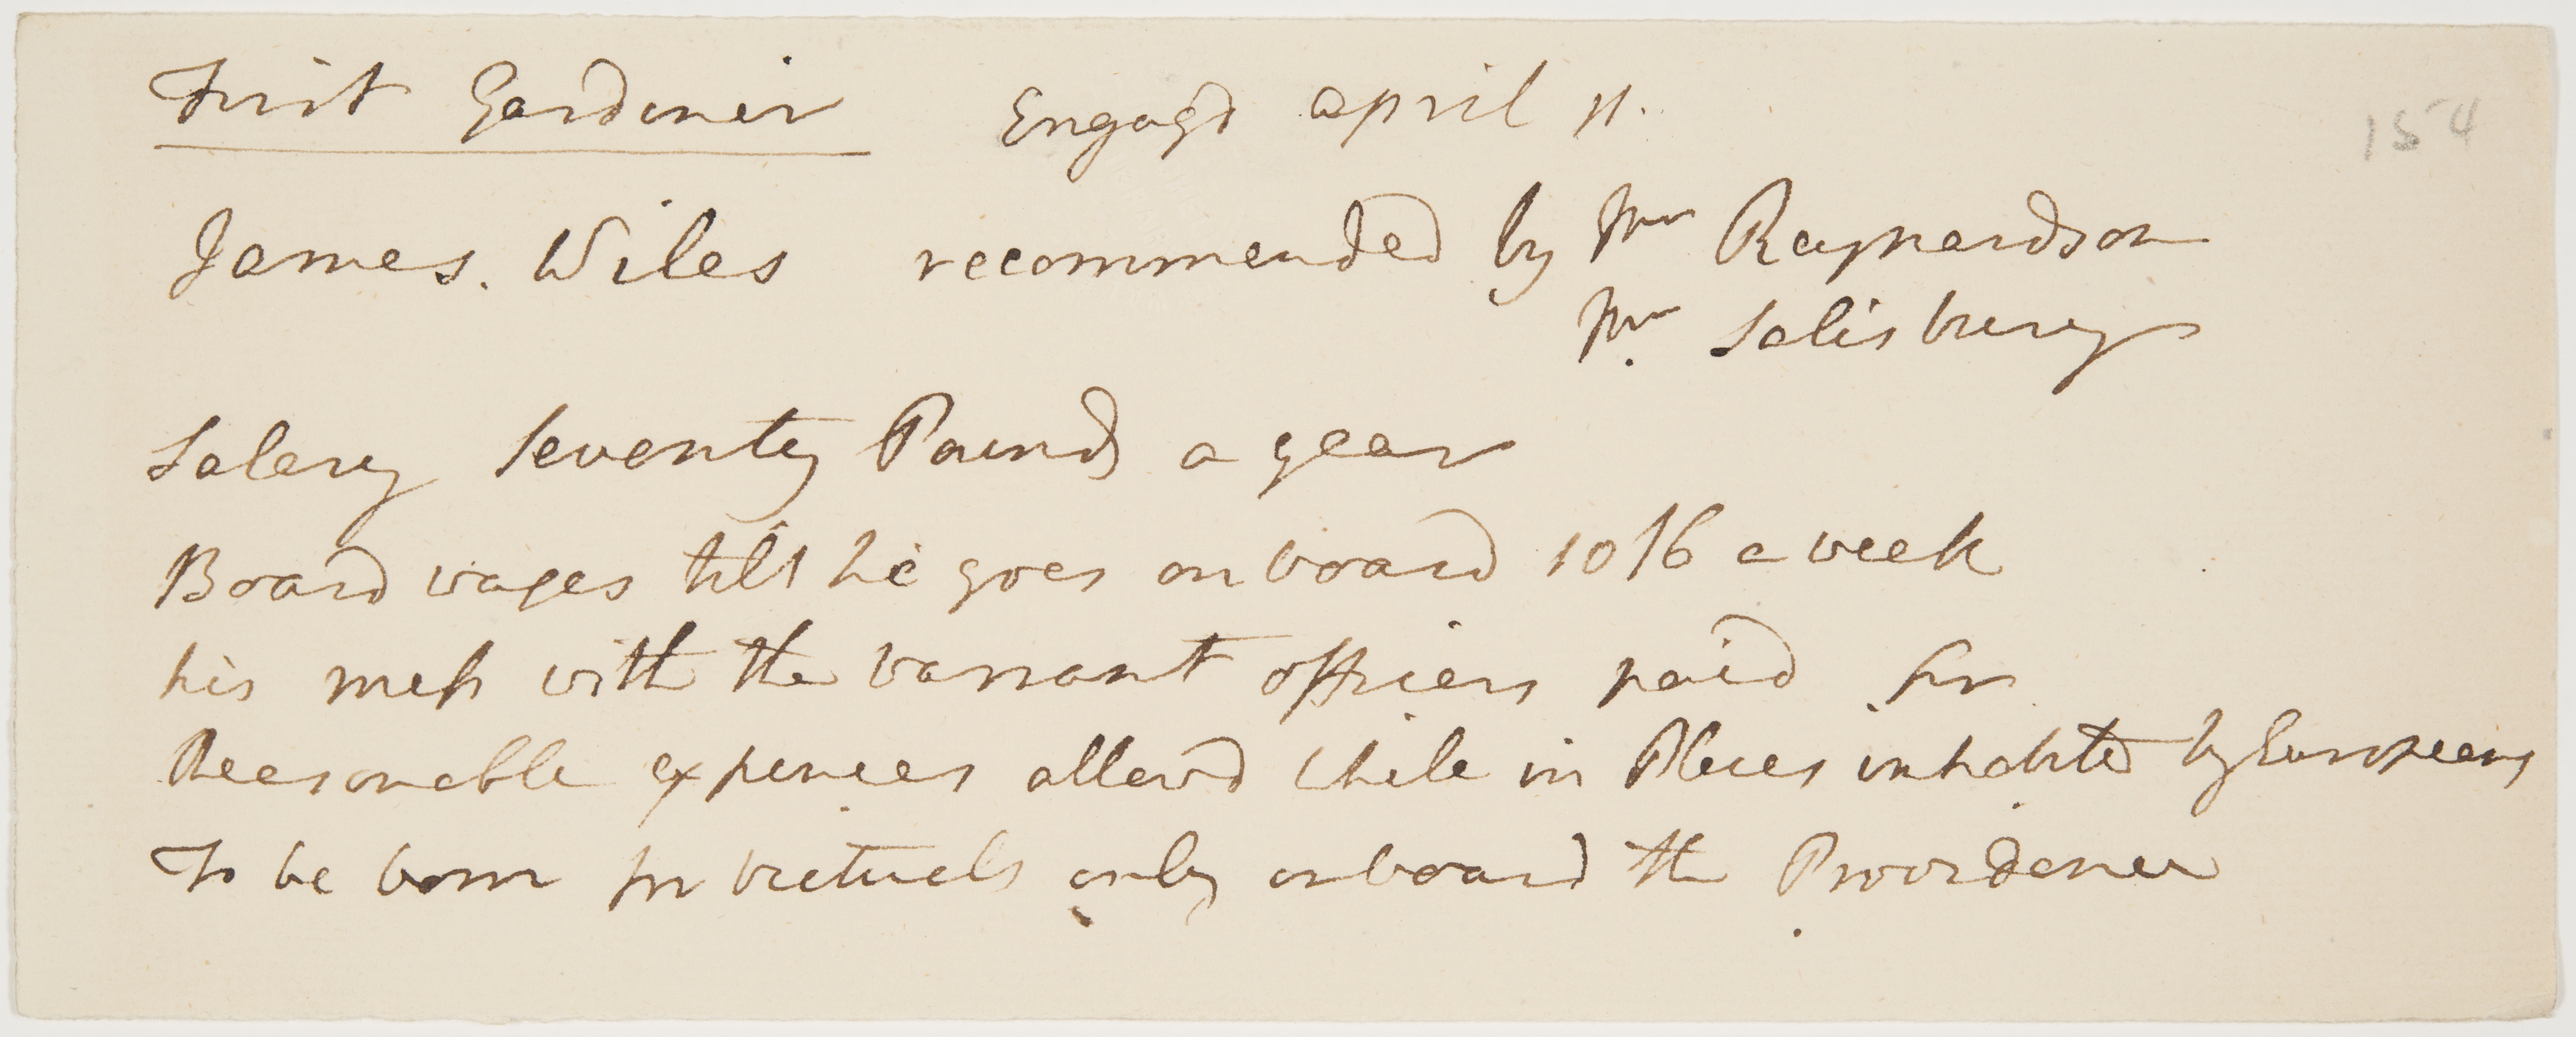 First Gardiner Engagd april 11.
154
James. Wiles recommended by Mr Raynardson
Mr. Salisbury
Salary Seventy Pounds a year
Board wages till he goes on board 10/6 a week
his mess with the warrant officers paid for
Reasonable expences allowd while in Places inhabited by Europeans
To be born for victuals only onboard the Providence